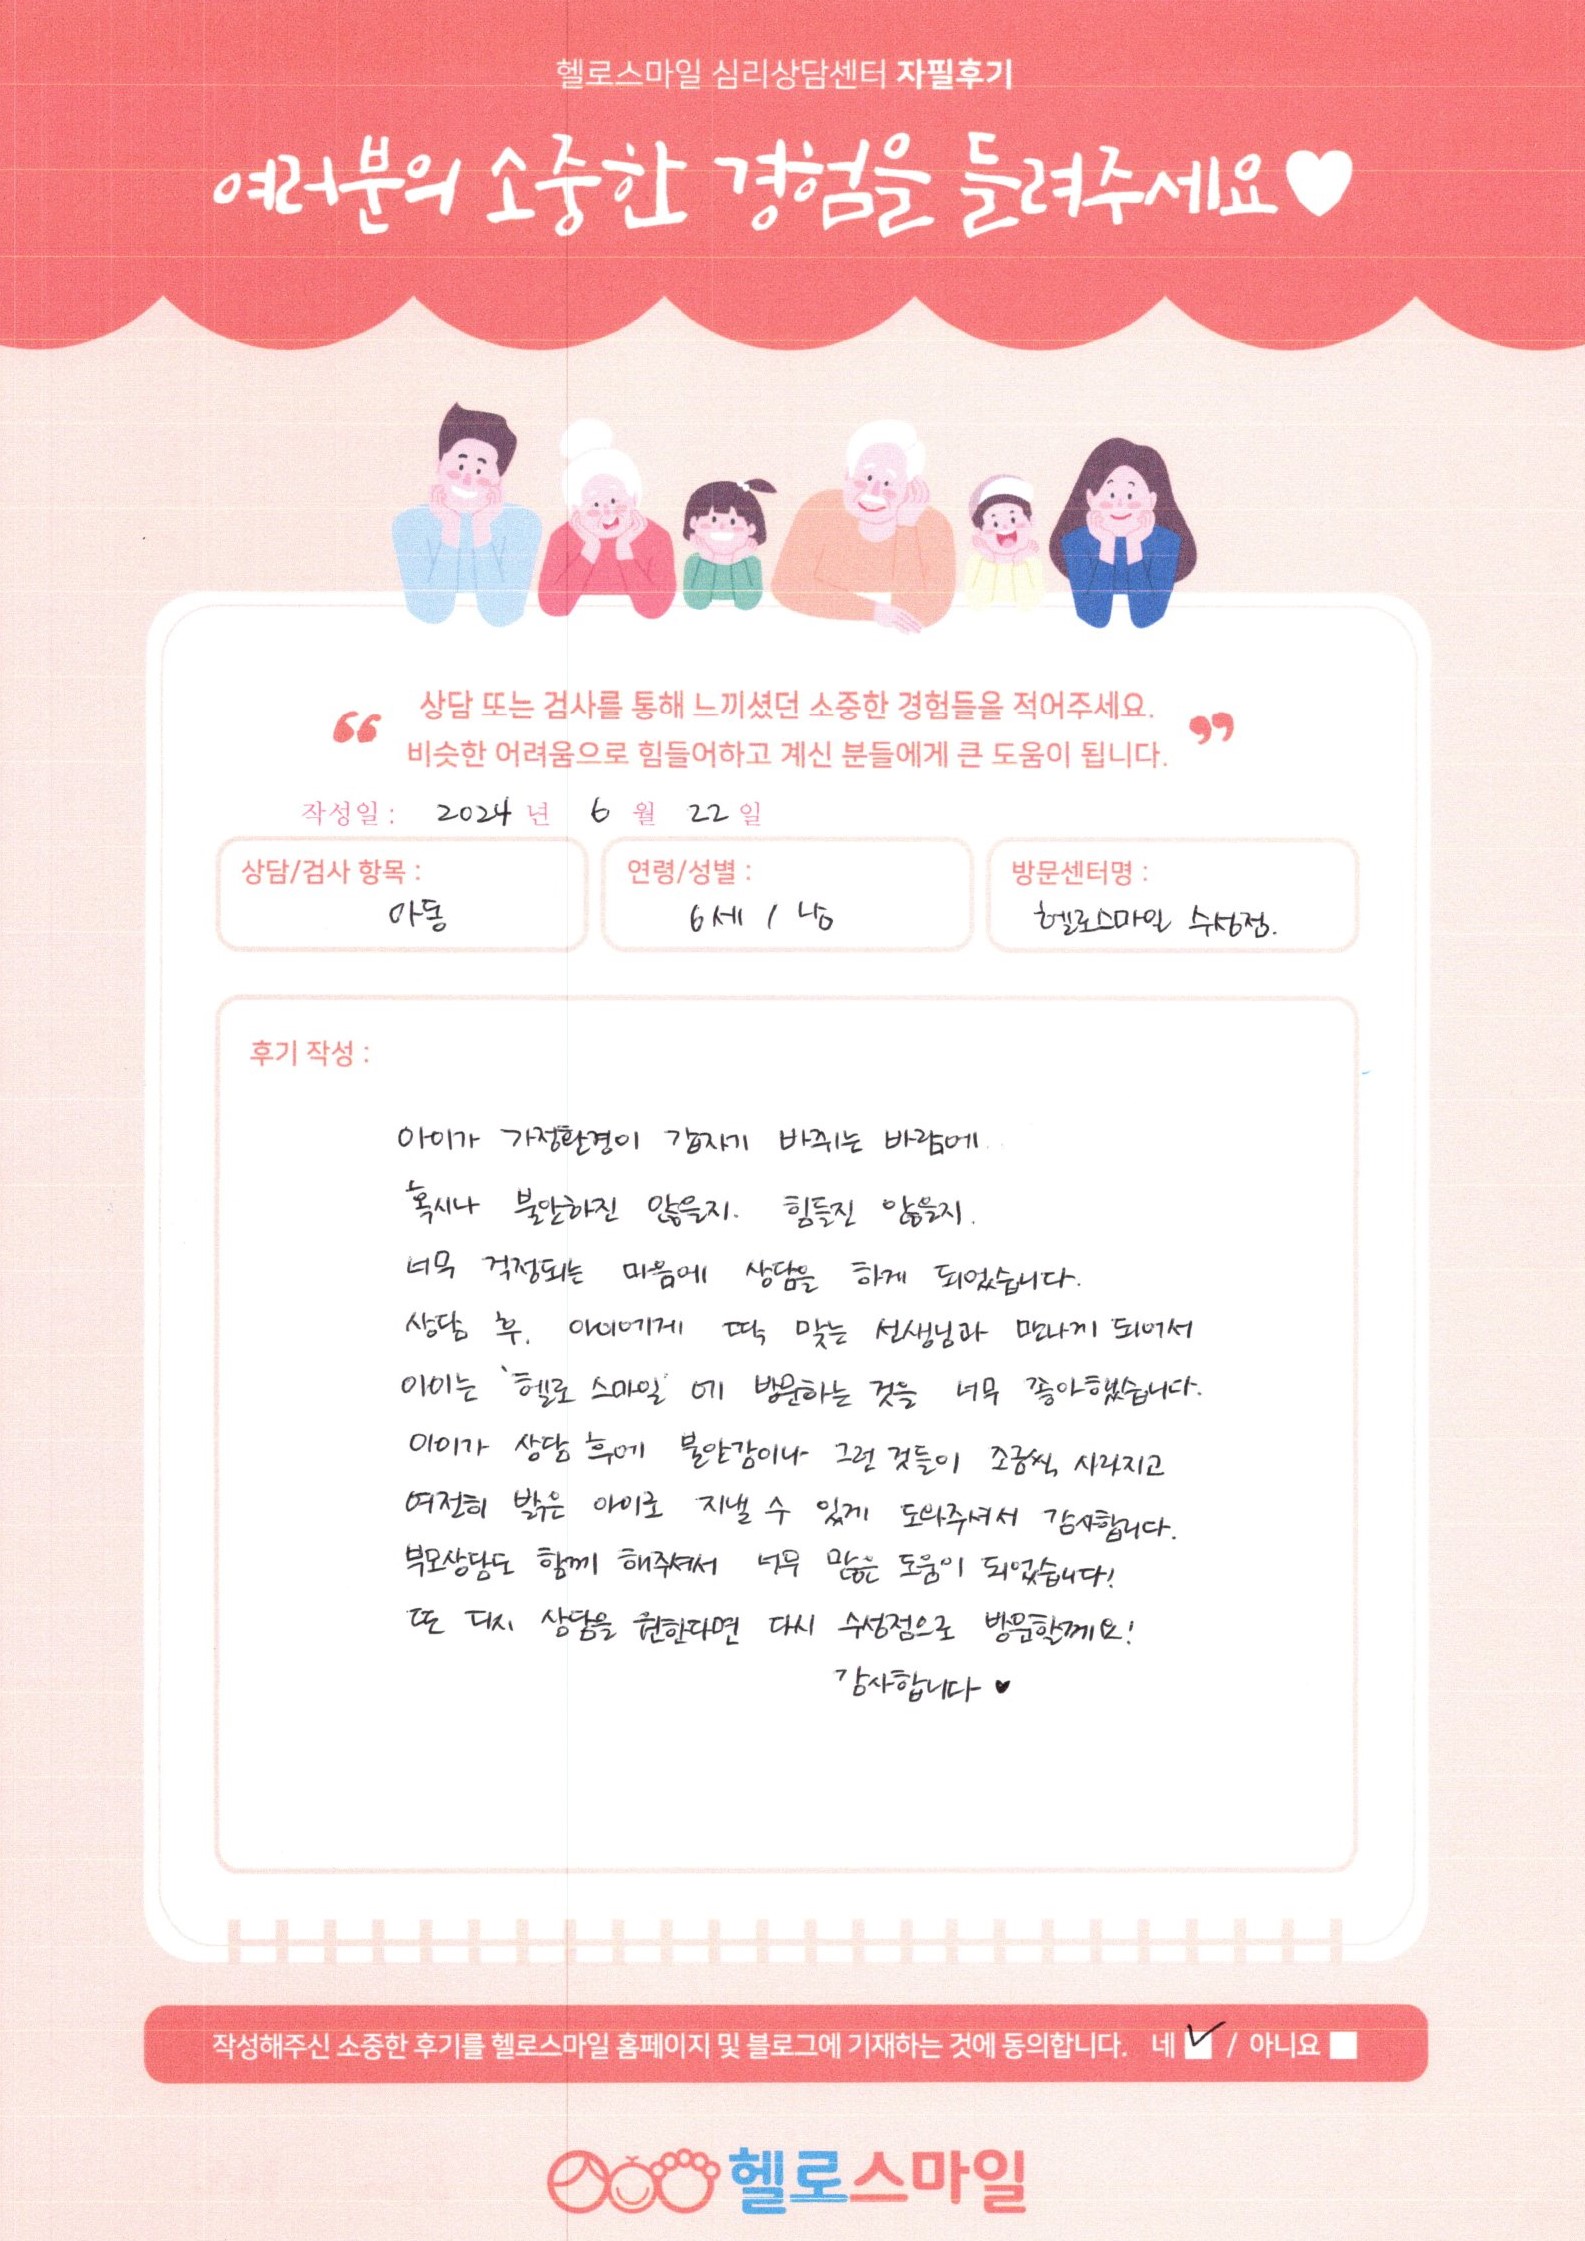 헬로스마일 심리상담센터 자필후기
여러분의 소중한 경험을 들려주세요♥
“ 상담 또는 검사를 통해 느끼셨던 소중한 경험들을 적어주세요. ”
비슷한 어려움으로 힘들어하고 계신 분들에게 큰 도움이 됩니다.
작성일 : 2024 년 6 월 22 일
상담/검사 항목 : 아동
연령/성별 : 6세 / 남
방문센터명 : 헬로스마일 수성점.
후기 작성 :
아이가 가정환경이 갑자기 바뀌는 바람에
혹시나 불안하진 않을지. 힘들진 않을지.
너무 걱정되는 마음에 상담을 하게 되었습니다.
상담 후, 아이에게 딱 맞는 선생님과 만나게 되어서
아이는 '헬로 스마일' 에 방문하는 것을 너무 좋아했습니다.
아이가 상담 후에 불안감이나 그런 것들이 조금씩 사라지고
여전히 밝은 아이로 지낼 수 있게 도와주셔서 감사합니다.
부모상담도 함께 해주셔서 너무 많은 도움이 되었습니다!
또 다시 상담을 원한다면 다시 수성점으로 방문할께요!
감사합니다 ♥
작성해주신 소중한 후기를 헬로스마일 홈페이지 및 블로그에 기재하는 것에 동의합니다. 네 ✓ / 아니요
헬로스마일